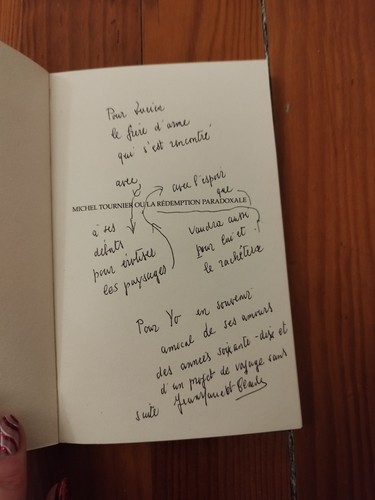 Pour Lucien
le frère d'arme
qui s'est rencontré
avec
avec l'espoir
que
MICHEL TOURNIER OU LA RÉDEMPTION PARADOXALE
à ses
débuts
pour érotiser
les paysages
vaudra aussi
pour lui et
le rachètera
Pour Yo en souvenir
amical de ses amours
des années soixante-dix et
d'un projet de voyage sans
suite